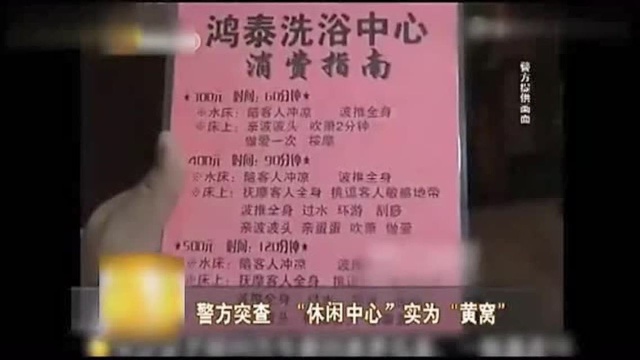 鸿泰洗浴中心
消费指南
★100元 时间:60分钟★
※水床:陪客人冲凉 波推全身
※床上:亲波波头 吹箫2分钟
做爱一次 按摩
★400元 时间:90分钟★
※水床:陪客人冲凉 波推全身
※床上:抚摩客人全身 挑逗客人敏感地带
波推全身 过水 环游 刮痧
亲波波头 亲蛋蛋 吹箫 做爱
★500元 时间:120分钟★
※水床:陪客人冲凉 波推
※床上:抚摩客人全身
警方提供画面
警方突查 “休闲中心”实为“黄窝”